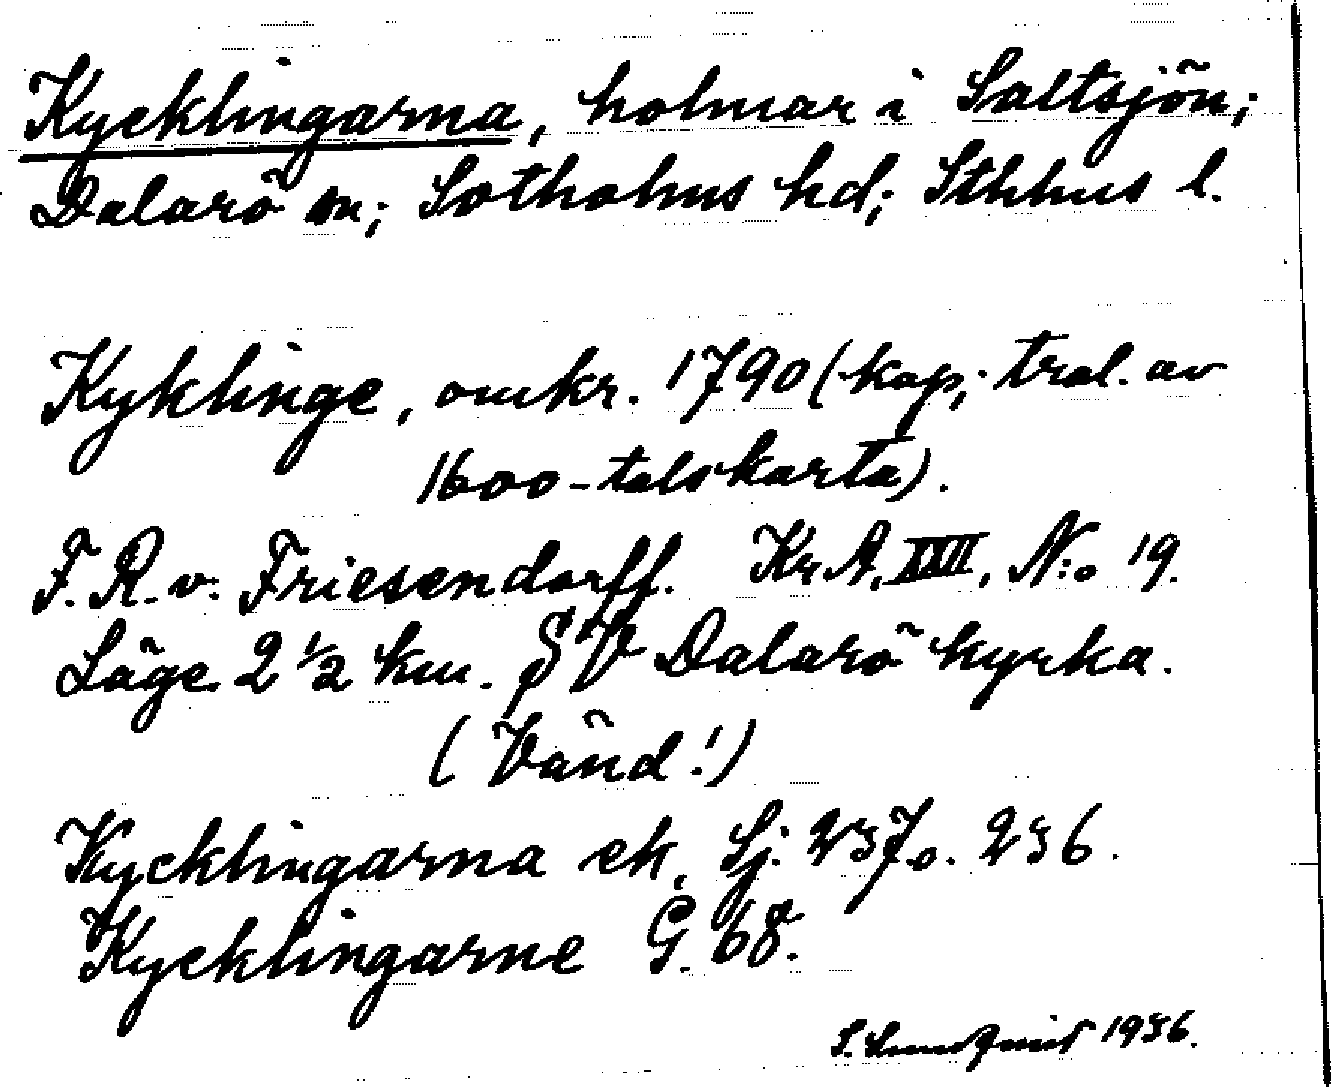 Kycklingarna, holmar i Saltsjön;
Dalarö sn; Sotholms hd; Sthlms l.
Kyklinge, omkr. 1790 (kop, trol. av
1600-talskarta).
F. R. v. Friesendorff. Kr. A, XXII, N:o 19.
Läge 2 1/2 km. SV Dalarö kyrka.
(Vänd!)
Kycklingarna ek, Sj. 237 o. 236.
Kycklingarne G. 68.
S. Lundquist 1936.